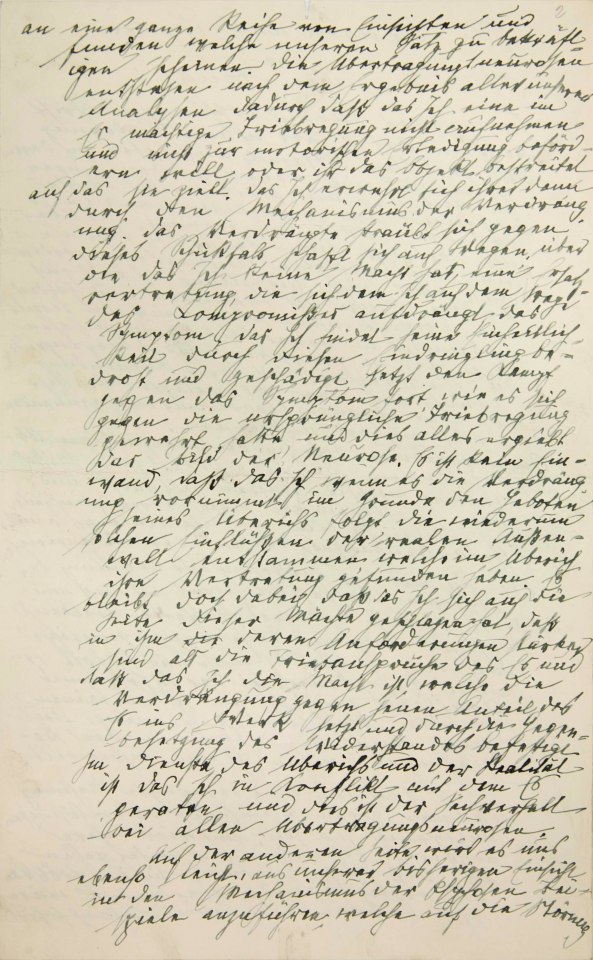 2
an eine ganze Reihe von Einsichten und
funden welche unseren Satz zu bekräft
igen scheinen. Die Übertragungsneurosen
entstehen nach dem Ergebnis aller unserer
Analysen dadurch daß das Ich eine im
Es mächtige Triebregung nicht aufnehmen
und nicht zur motorischen Erledigung beförd-
ern will oder ihr das Objekt bestreitet
auf das sie zielt. Das Ich erwehrt sich ihrer dann
durch den Mechanismus der Verdräng
ung. das Verdrängte sträubt sich gegen
dieses Schicksal schafft sich auf Wegen, über
die das Ich keine Macht hat, eine Ersatz
vertretung, die sich dem Ich auf dem Wege
des Kompromißes aufdrängt das
Symptom, das Ich findet seine Einheitlich
keit durch diesen Eindringling be-
droht und geschädigt setzt den Kampf
gegen das Symptom fort wie es sich
gegen die ursprüngliche Triebregung
gewehrt hatte und dies alles ergiebt
das Bild der Neurose. Es ist kein Ein-
wand, daß das Ich wenn es die Verdräng
ung vornimmt im Grunde den Geboten
seines Überichs folgt die wiederum
solchen Einflüßen der realen Außen-
welt entstammen welche im Überich
ihre Vertretung gefunden haben. Es
bleibt doch dabei daß das Ich sich auf die
Seite dieser Mächte geschlagen hat, daß
in ihm die deren Anforderungen stärker
sind als die Triebansprüche des Es und
daß das Ich die Macht ist, welche die
Verdrängung gegen jenen Anteil des
Es ins Werk setzt und durch die Gegen-
besetzung des Widerstandes befestigt
Im Dienste des Überichs und der Realität
ist das Ich in Konflikt mit dem Es
geraten und dies ist der Sachverhalt
bei allen Übertragungsneurosen.
Auf der anderen Seite wird es uns
ebenso leicht, aus unserer bisherigen Einsicht
in den Mechanismus der Psychosen Bei-
spiele anzuführen, welche auf die Störung